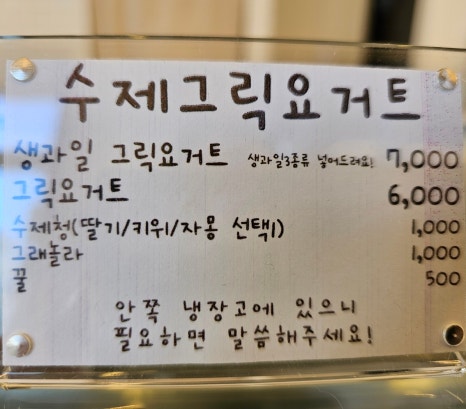 수제그릭요거트
생과일 그릭요거트 생과일3종류 넣어드려요! 7,000
그릭요거트 6,000
수제청(딸기/키위/자몽 선택1) 1,000
그래놀라 1,000
꿀 500
안쪽 냉장고에 있으니
필요하면 말씀해주세요!